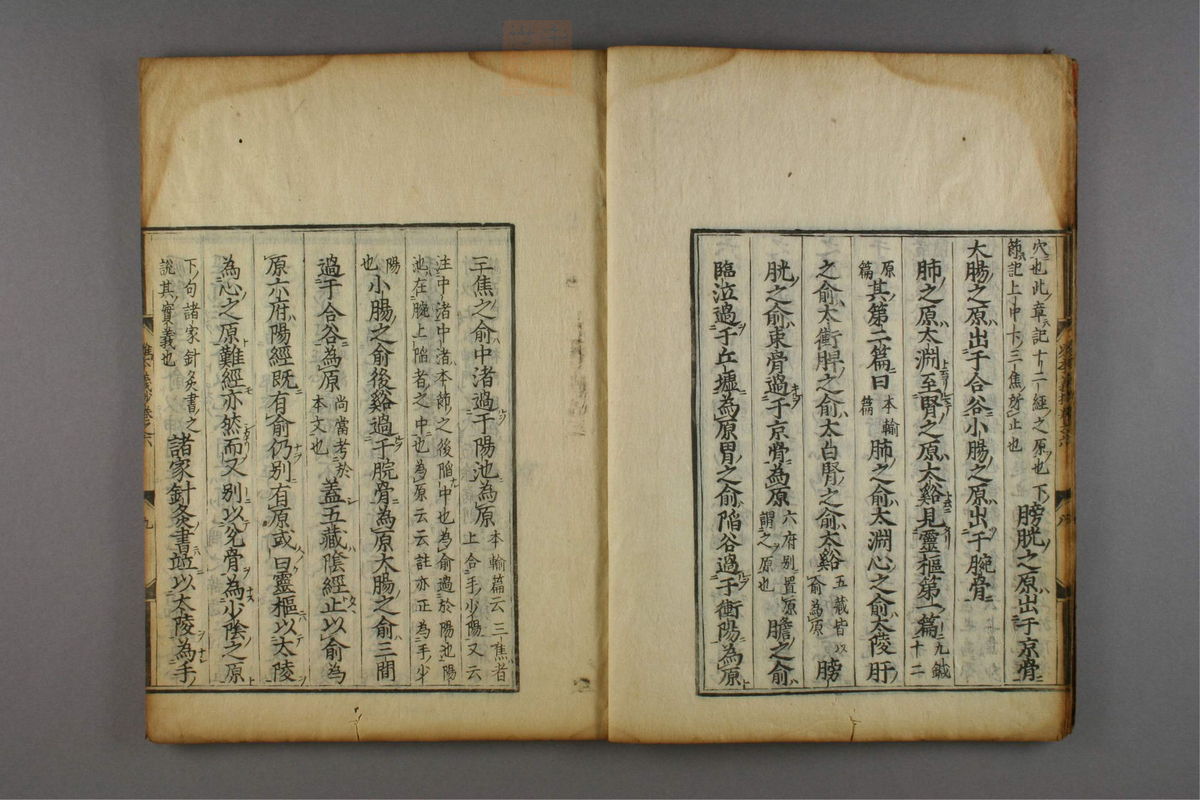 穴也此章記十二經之原也下
節記上中下三焦所止也
膀胱之原出于京骨
大腸之原出于合谷小腸之原出于腕骨
肺之原太淵至腎之原太谿見靈樞第一篇
九鍼
十二
原
篇
其第二篇曰
本輸
篇
肺之俞太淵心之俞太陵肝
之俞太衝脾之俞太白腎之俞太谿
五藏皆以
俞為原
膀
胱之俞束骨過于京骨為原
六府别置原
謂之原也
膽之俞
臨泣過于丘墟為原胃之俞陷谷過于衝陽為原
三焦之俞中渚過于陽池為原
本輸篇云三焦者
上合手少陽又云
注中渚中渚本節之後陷中也為俞過於陽池陽
池在腕上陷者之中也為原云云註亦正為手少
陽
也
小腸之俞後谿過于腕骨為原大腸之俞三間
過于合谷為原
尚當考於
本文也
蓋五藏陰經止以俞為
原六府陽經既有俞仍别有原或曰靈樞以太陵
為心之原難經亦然而又别以兊骨為少陰之原
下句諸家針灸書之
説其實義也
諸家針灸書竝以太陵為手
九